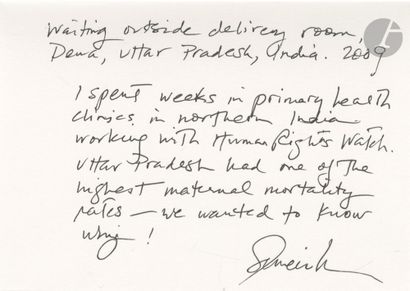 Waiting outside delivery room,
Dewa, Uttar Pradesh, India. 2009
I spent weeks in primary health
clinics in northern India
working with Human Rights Watch.
Uttar Pradesh had one of the
highest maternal mortality
rates — we wanted to know
why!